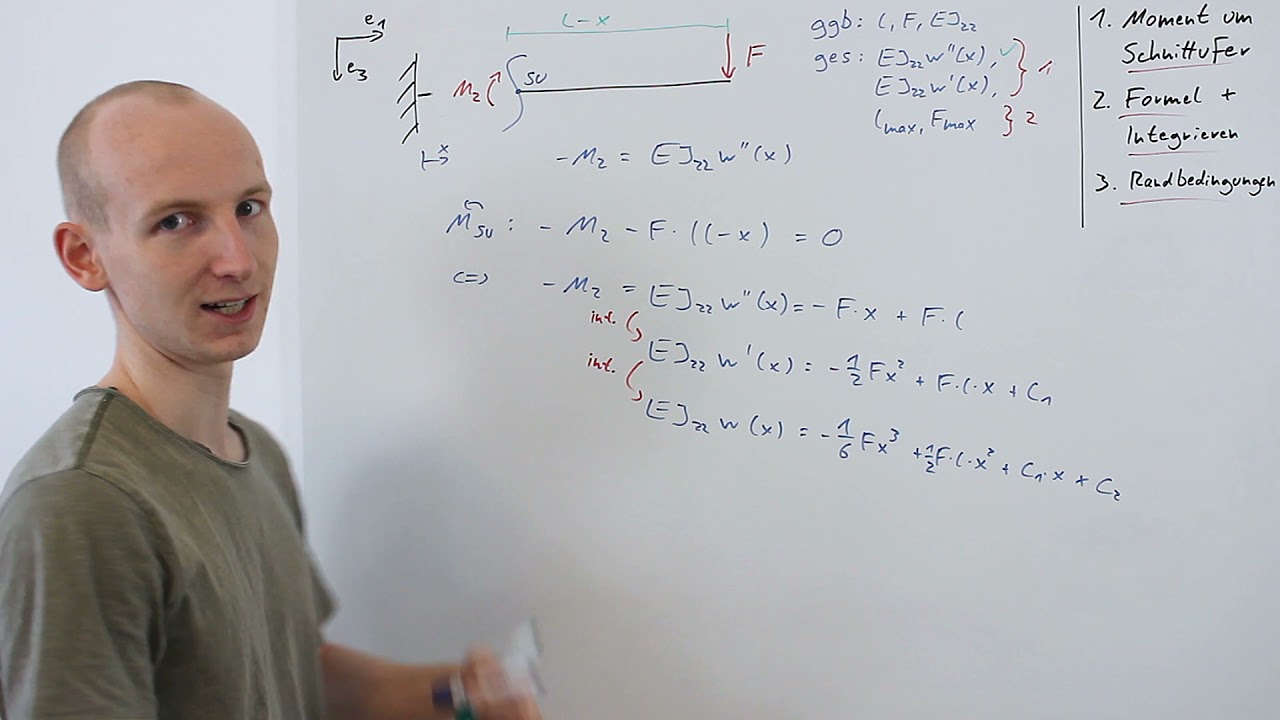 e₁
e₃
l-x
F
M₂
SU
x
ggb: l, F, EJ₂₂
ges: EJ₂₂w''(x), ✓ } 1
EJ₂₂w'(x),
lmax, Fmax } 2
1. Moment um
Schnittufer
2. Formel +
Integrieren
3. Randbedingungen
-M₂ = EJ₂₂w''(x)
M_SU: -M₂ - F·(l-x) = 0
<=> -M₂ = EJ₂₂w''(x) = -F·x + F·l
int. EJ₂₂w'(x) = -1/2 Fx² + F·l·x + C₁
int. EJ₂₂w(x) = -1/6 Fx³ + 1/2 F·l·x² + C₁·x + C₂